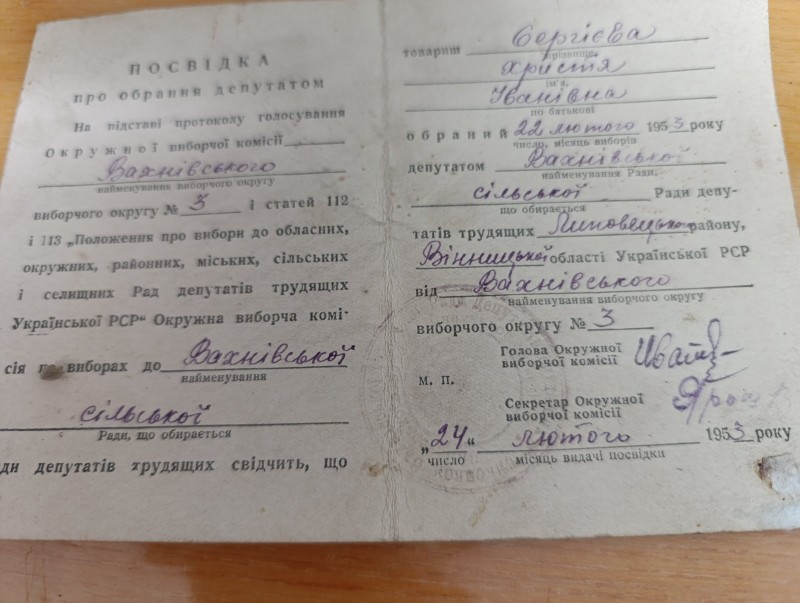 ПОСВІДКА
про обрання депутатом
На підставі протоколу голосування
Окружної виборчої комісії
Вахнівського
найменування виборчого округу
виборчого округу № 3 і статей 112
і 113 „Положення про вибори до обласних,
окружних, районних, міських, сільських
і селищних Рад депутатів трудящих
Української РСР“ Окружна виборча комі-
сія по виборах до Вахнівської
найменування
сільської
Ради, що обирається
ди депутатів трудящих свідчить, що
товариш Сергієва
прізвище,
Христя
ім'я,
Іванівна
по батькові
обраний 22 лютого 1953 року
число, місяць виборів
депутатом Вахнівської
найменування Ради,
сільської Ради депу-
що обирається
татів трудящих Липовецького району,
Вінницької області Української РСР
від Вахнівського
найменування виборчого округу
виборчого округу № 3
Голова Окружної
виборчої комісії
М. П.
Секретар Окружної
виборчої комісії
„24“ лютого 1953 року
число місяць видачі посвідки